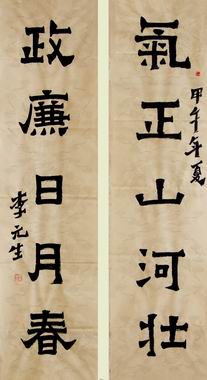 氣正山河壯
甲午年夏
政廉日月春
李元生